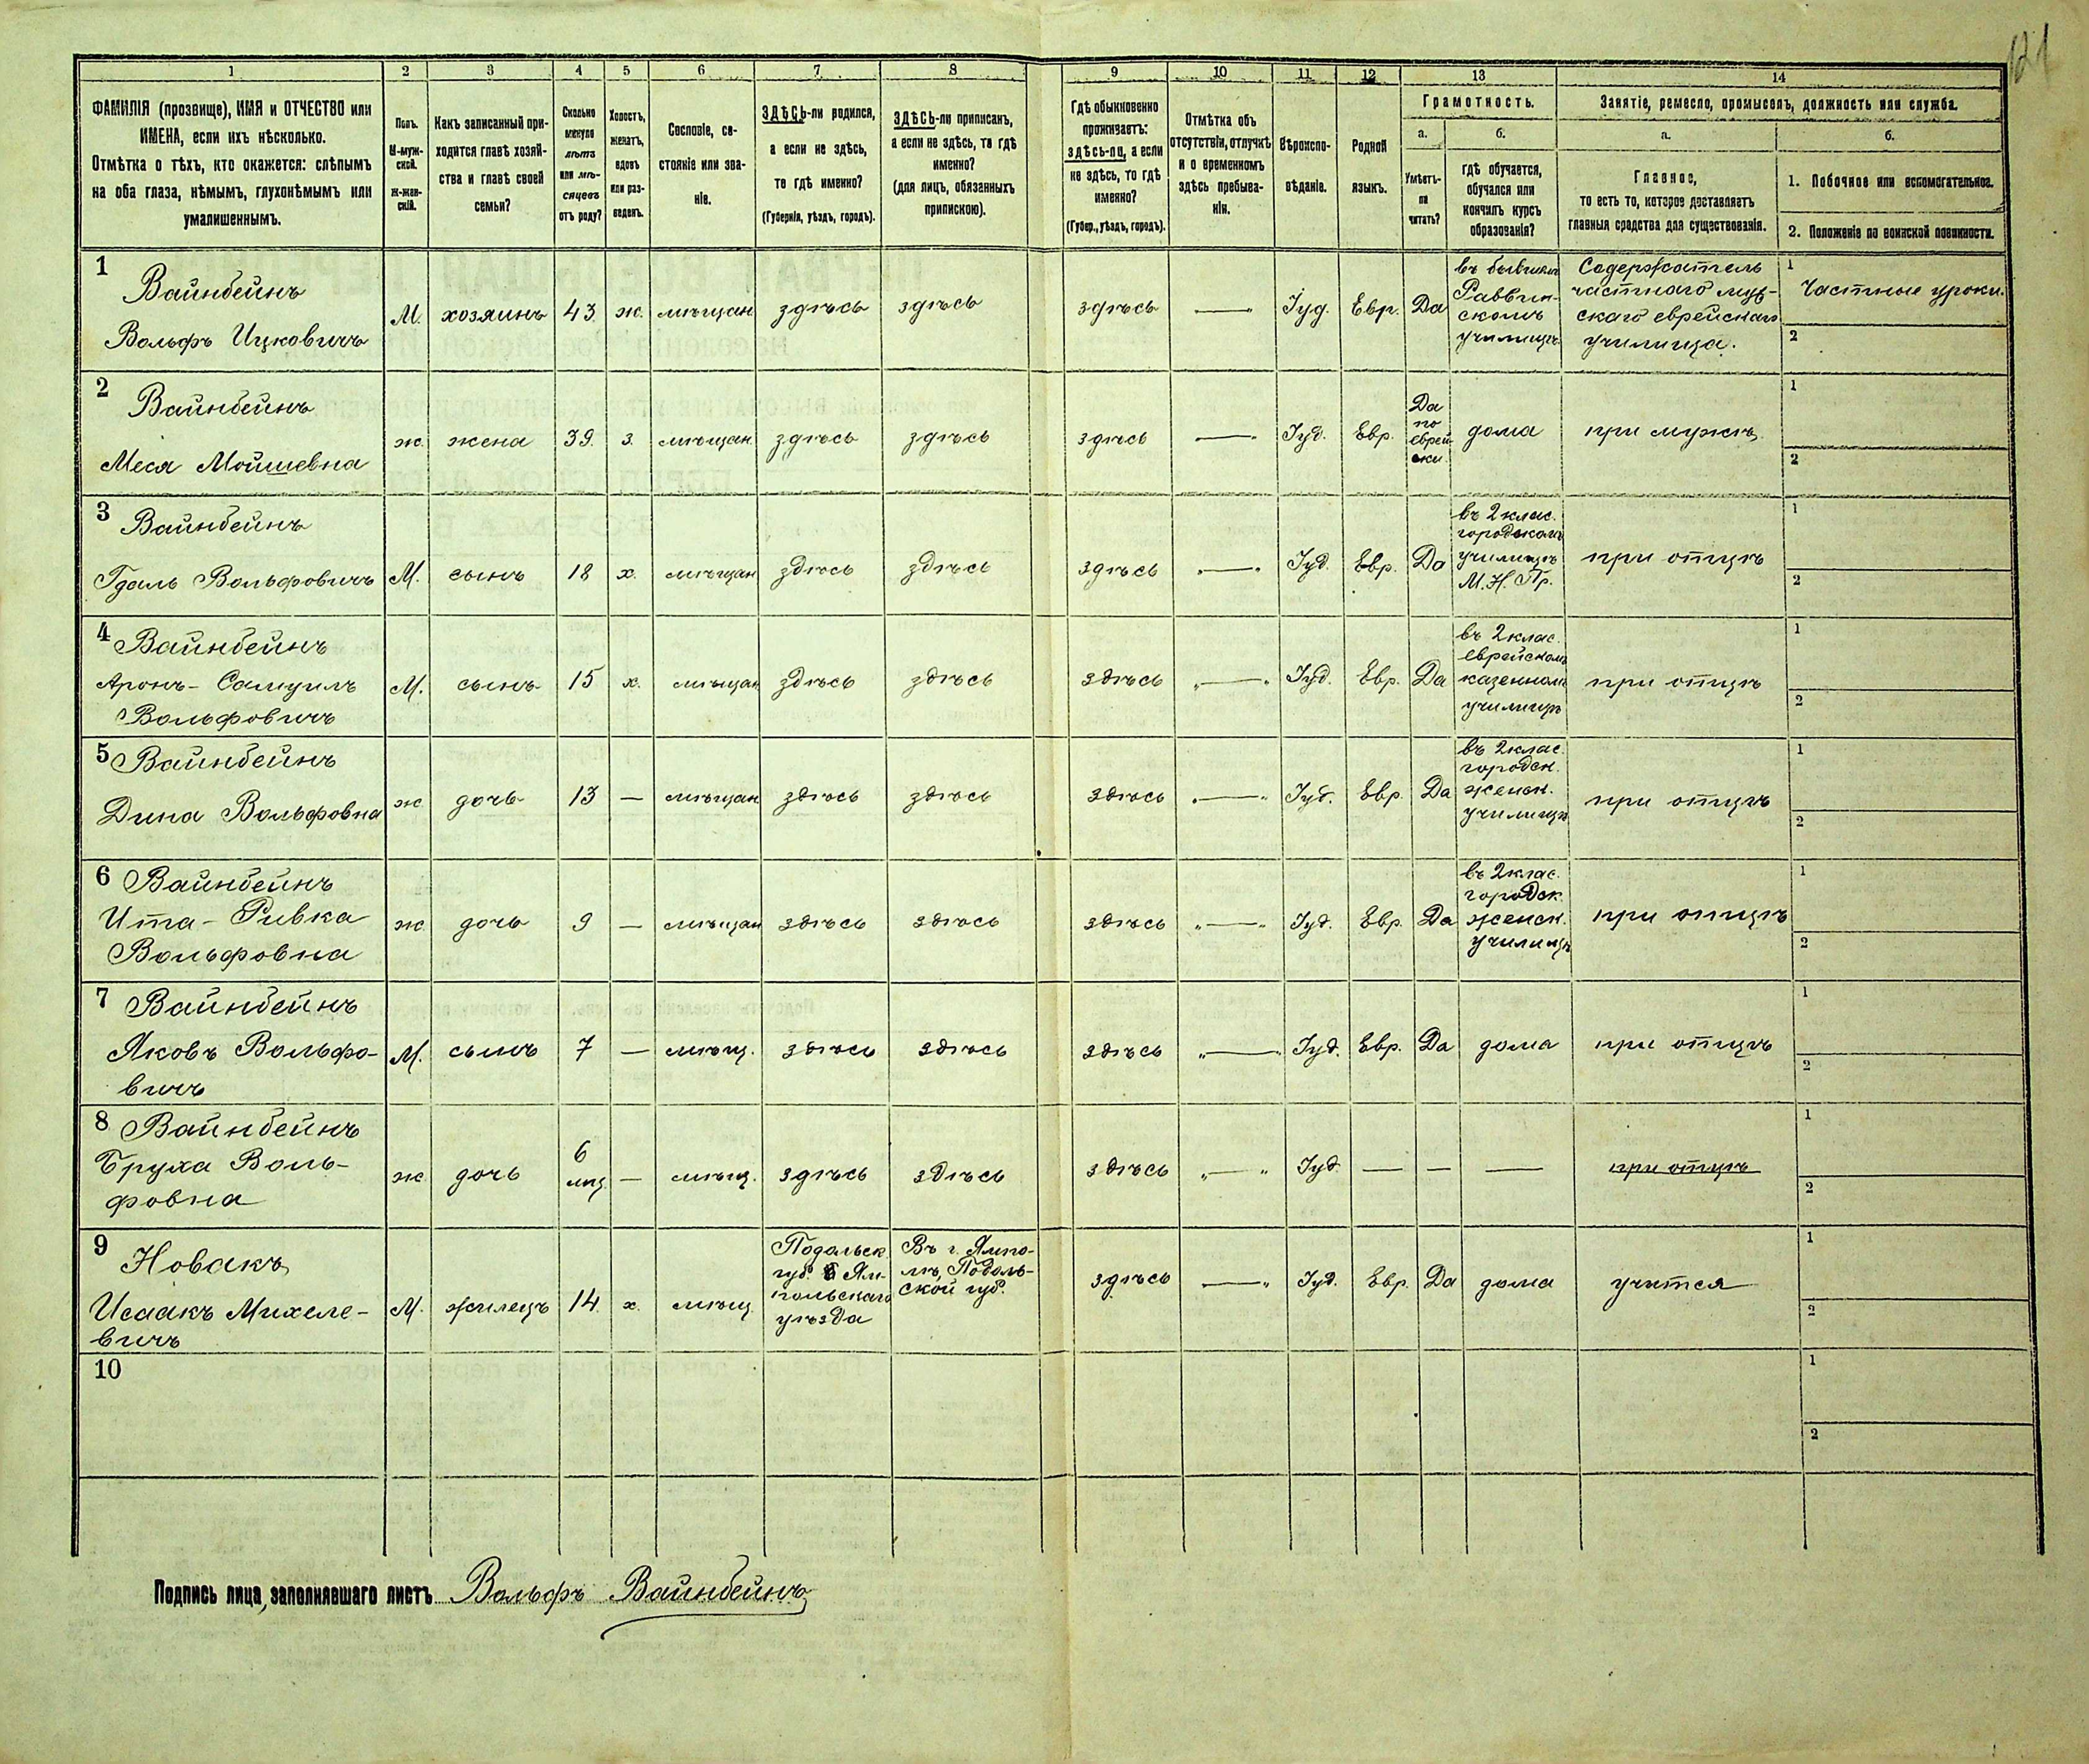 121
1 2 3 4 5 6 7 8 9 10 11 12 13 14
ФАМИЛІЯ (прозвище), ИМЯ и ОТЧЕСТВО или
ИМЕНА, если ихъ нѣсколько.
Отмѣтка о тѣхъ, кто окажется: слѣпымъ
на оба глаза, нѣмымъ, глухонѣмымъ или
умалишеннымъ.
Полъ.
М-муж-
ской.
Ж-жен-
скій.
Какъ записанный при-
ходится главѣ хозяй-
ства и главѣ своей
семьи?
Сколько
минуло
лѣтъ
или мѣ-
сяцевъ
отъ роду?
Холостъ,
женатъ,
вдовъ
или раз-
веденъ.
Сословіе, со-
стояніе или зва-
ніе.
ЗДѢСЬ-ли родился,
а если не здѣсь,
то гдѣ именно?
(Губернія, уѣздъ, городъ).
ЗДѢСЬ-ли приписанъ,
а если не здѣсь, то гдѣ
именно?
(для лицъ, обязанныхъ
припискою).
Гдѣ обыкновенно
проживаетъ:
здѣсь-ли, а если
не здѣсь, то гдѣ
именно?
(Губер., уѣздъ, городъ).
Отмѣтка объ
отсутствіи, отлучкѣ
и о временномъ
здѣсь пребыва-
ніи.
Вѣроиспо-
вѣданіе.
Родной
языкъ.
Грамотность.
а.
Умѣетъ-
ли
читать?
б.
гдѣ обучается,
обучался или
кончилъ курсъ
образованія?
Занятіе, ремесло, промыселъ, должность или служба.
а.
Главное,
то есть то, которое доставляетъ
главныя средства для существованія.
б.
1. Побочное или вспомогательное.
2. Положеніе по воинской повинности.
1
Вайнбейнъ
Вольфъ Ицковичъ
М. хозяинъ 43 ж. мѣщан здѣсь здѣсь здѣсь — Іуд. Евр. Да
въ бывшемъ
Раввин-
скомъ
училищѣ
Содержатель
частнаго муж-
скаго еврейскаго
училища.
1
Частные уроки.
2
2
Вайнбейнъ
Меся Мойшевна
ж. жена 39. з. мѣщан. здѣсь здѣсь здѣсь — Іуд. Евр.
Да
по
еврей-
ски.
дома при мужѣ
1
2
3
Вайнбейнъ
Гдаль Вольфовичъ
М. сынъ 18 х. мѣщан здѣсь здѣсь здѣсь — Іуд. Евр. Да
въ 2 клас.
городскомъ
училищѣ
М. Н. Пр.
при отцѣ
1
2
4
Вайнбейнъ
Аронъ-Самуилъ
Вольфовичъ
М. сынъ 15 х. мѣщан здѣсь здѣсь здѣсь „—„ Іуд. Евр. Да
въ 2 клас.
еврейскомъ
казенномъ
училищѣ
при отцѣ
1
2
5
Вайнбейнъ
Дина Вольфовна
ж дочь 13 — мѣщан здѣсь здѣсь здѣсь „—„ Іуд. Евр. Да
въ 2 клас.
городск.
женск.
училищѣ
при отцѣ
1
2
6
Вайнбейнъ
Ита-Ривка
Вольфовна
ж. дочь 9 — мѣщан здѣсь здѣсь здѣсь „—„ Іуд. Евр. Да
въ 2 клас.
городск.
женск.
училищѣ
при отцѣ
1
2
7
Вайнбейнъ
Яковъ Вольфо-
вичъ
М. сынъ 7 — мѣщ. здѣсь здѣсь здѣсь „—„ Іуд. Евр. Да дома при отцѣ
1
2
8
Вайнбейнъ
Бруха Воль-
фовна
ж дочь
6
мѣс
— мѣщ. здѣсь здѣсь здѣсь „—„ Іуд. — — — при отцѣ
1
2
9
Новакъ
Исаакъ Михеле-
вичъ
М. жилецъ 14. х. мѣщ.
Подольск.
губ. Ям-
польскаго
уѣзда
Въ г. Ямпо-
лѣ, Подоль-
ской губ.
здѣсь —„ Іуд. Евр. Да дома учится
1
2
10
1
2
Подпись лица, заполнявшаго листъ Вольфъ Вайнбейнъ